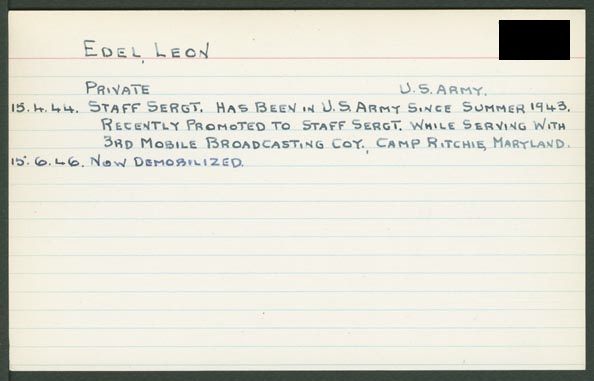 EDEL, LEON
PRIVATE U.S. ARMY.
15.4.44. STAFF SERGT. HAS BEEN IN U.S. ARMY SINCE SUMMER 1943.
RECENTLY PROMOTED TO STAFF SERGT. WHILE SERVING WITH
3RD MOBILE BROADCASTING COY., CAMP RITCHIE, MARYLAND.
15.6.46. NOW DEMOBILIZED.